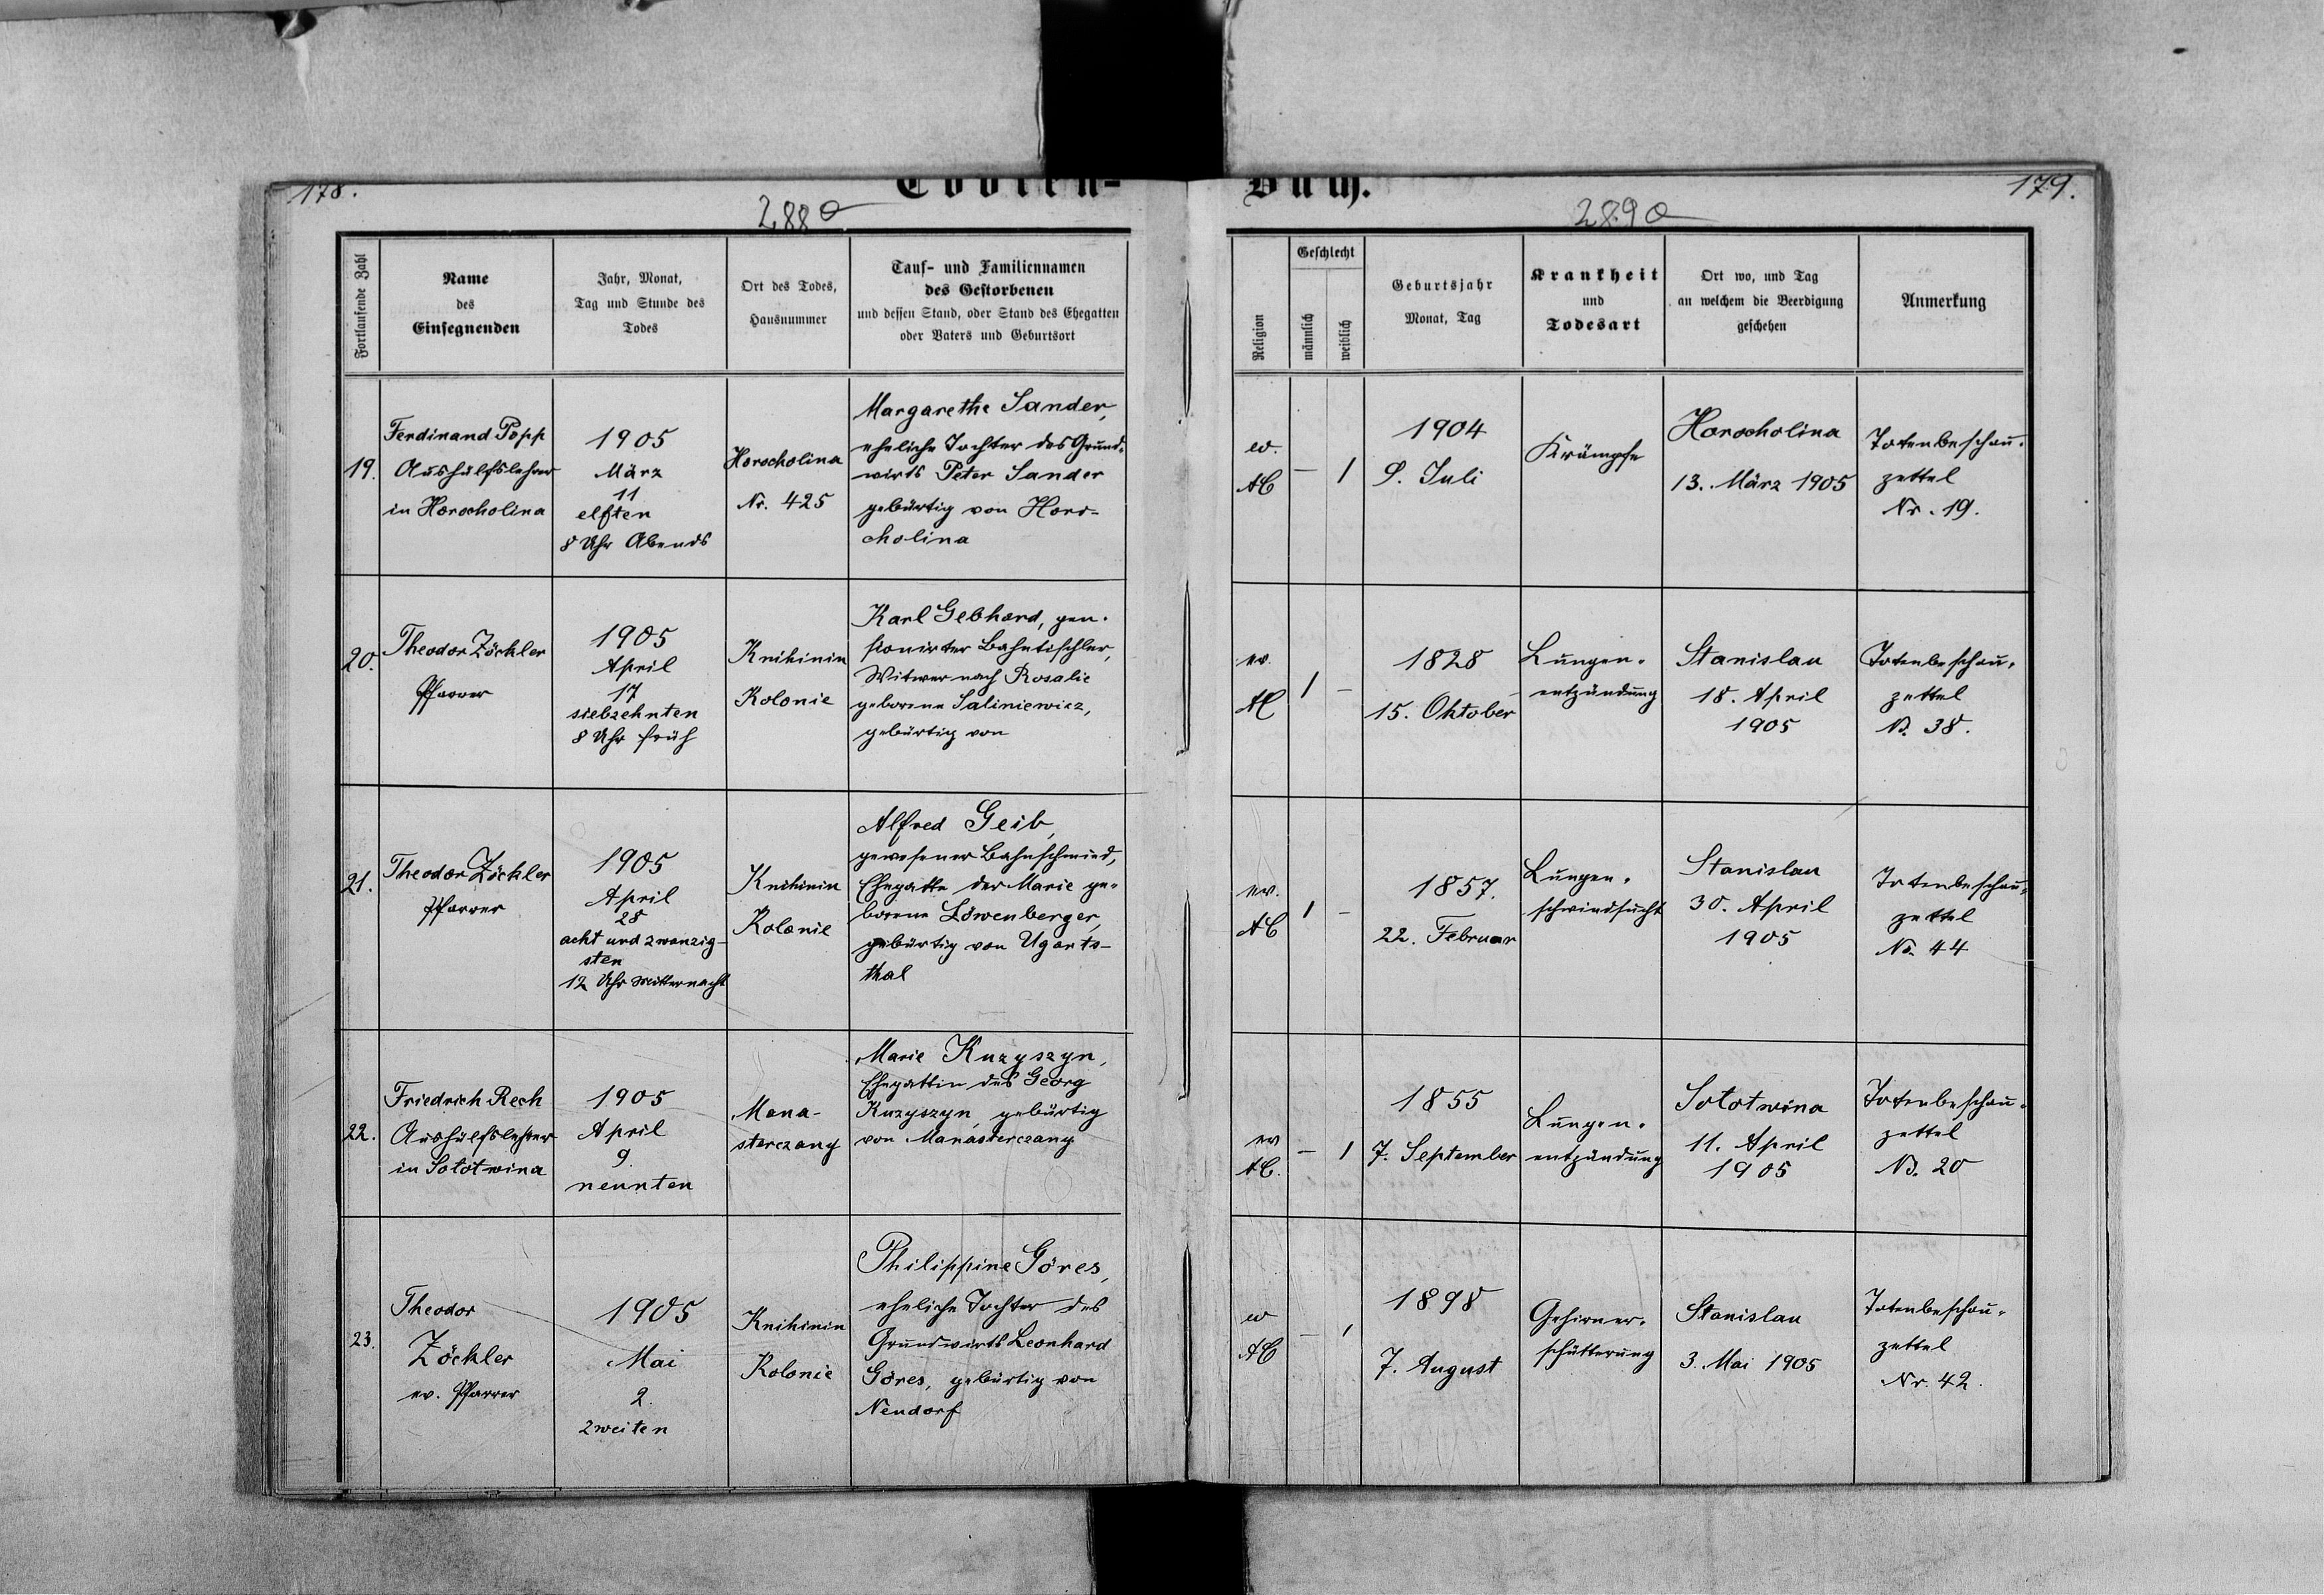 178.
Todten-
Buch.
179.
2880
2890
Fortlaufende Zahl
Name
des
Einsegnenden
Jahr, Monat,
Tag und Stunde des
Todes
Ort des Todes,
Hausnummer
Tauf- und Familiennamen
des Gestorbenen
und dessen Stand, oder Stand des Ehegatten
oder Vaters und Geburtsort
Religion
Geschlecht
männlich
weiblich
Geburtsjahr
Monat, Tag
Krankheit
und
Todesart
Ort wo, und Tag
an welchem die Beerdigung
geschehen
Anmerkung
19.
Ferdinand Popp
Aushülfslehrer
in Horocholina
1905
März
11
elften
8 Uhr Abends
Horocholina
Nr. 425
Margarethe Sander,
eheliche Tochter des Grund-
wirts Peter Sander
gebürtig von Horo-
cholina
ev.
AC
— 1
1904
9. Juli
Krämpfe
Horocholina
13. März 1905
Totenbeschau-
zettel
Nr. 19.
20.
Theodor Zöckler
Pfarrer
1905
April
17
siebzehnten
8 Uhr früh
Knihinin
Kolonie
Karl Gebhard, pen-
sionirter Bahntischler,
Witwer nach Rosalie
geborene Saliniewicz,
gebürtig von
ev.
AC
1 —
1828
15. Oktober
Lungen-
entzündung
Stanislau
18. April
1905
Totenbeschau-
zettel
No. 38.
21.
Theodor Zöckler
Pfarrer
1905
April
28
acht und zwanzig-
sten
12 Uhr Mitternacht
Knihinin
Kolonie
Alfred Geib,
gewesener Bahnschmied,
Ehegatte der Marie ge-
borene Löwenberger,
gebürtig von Ugarts-
thal
ev.
AC
1 —
1857.
22. Februar
Lungen-
schwindsucht
Stanislau
30. April
1905
Totenbeschau-
zettel
No. 44
22.
Friedrich Rech
Aushülfslehrer
in Sołotwina
1905
April
9.
neunten
Mana-
sterczany
Marie Kuzyszyn,
Ehegattin des Georg
Kuzyszyn, gebürtig
von Manasterczany
ev
AC.
— 1
1855
7. September
Lungen-
entzündung
Sołotwina
11. April
1905
Totenbeschau-
zettel
No. 20
23.
Theodor
Zöckler
ev. Pfarrer
1905
Mai
2.
zweiten
Knihinin
Kolonie
Philippine Göres,
eheliche Tochter des
Grundwirts Leonhard
Göres, gebürtig von
Neudorf
ev
AC
— 1
1898
7. August
Gehirner-
schütterung
Stanislau
3. Mai 1905
Totenbeschau-
zettel
Nr. 42.